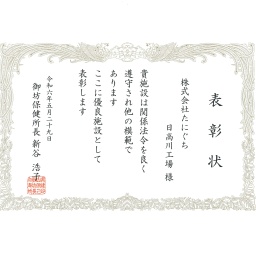 表彰状
株式会社たにぐち
日高川工場 様
貴施設は関係法令を良く
遵守され他の模範で
あります
ここに優良施設として
表彰します
令和六年五月二十九日
御坊保健所長 新谷 浩子